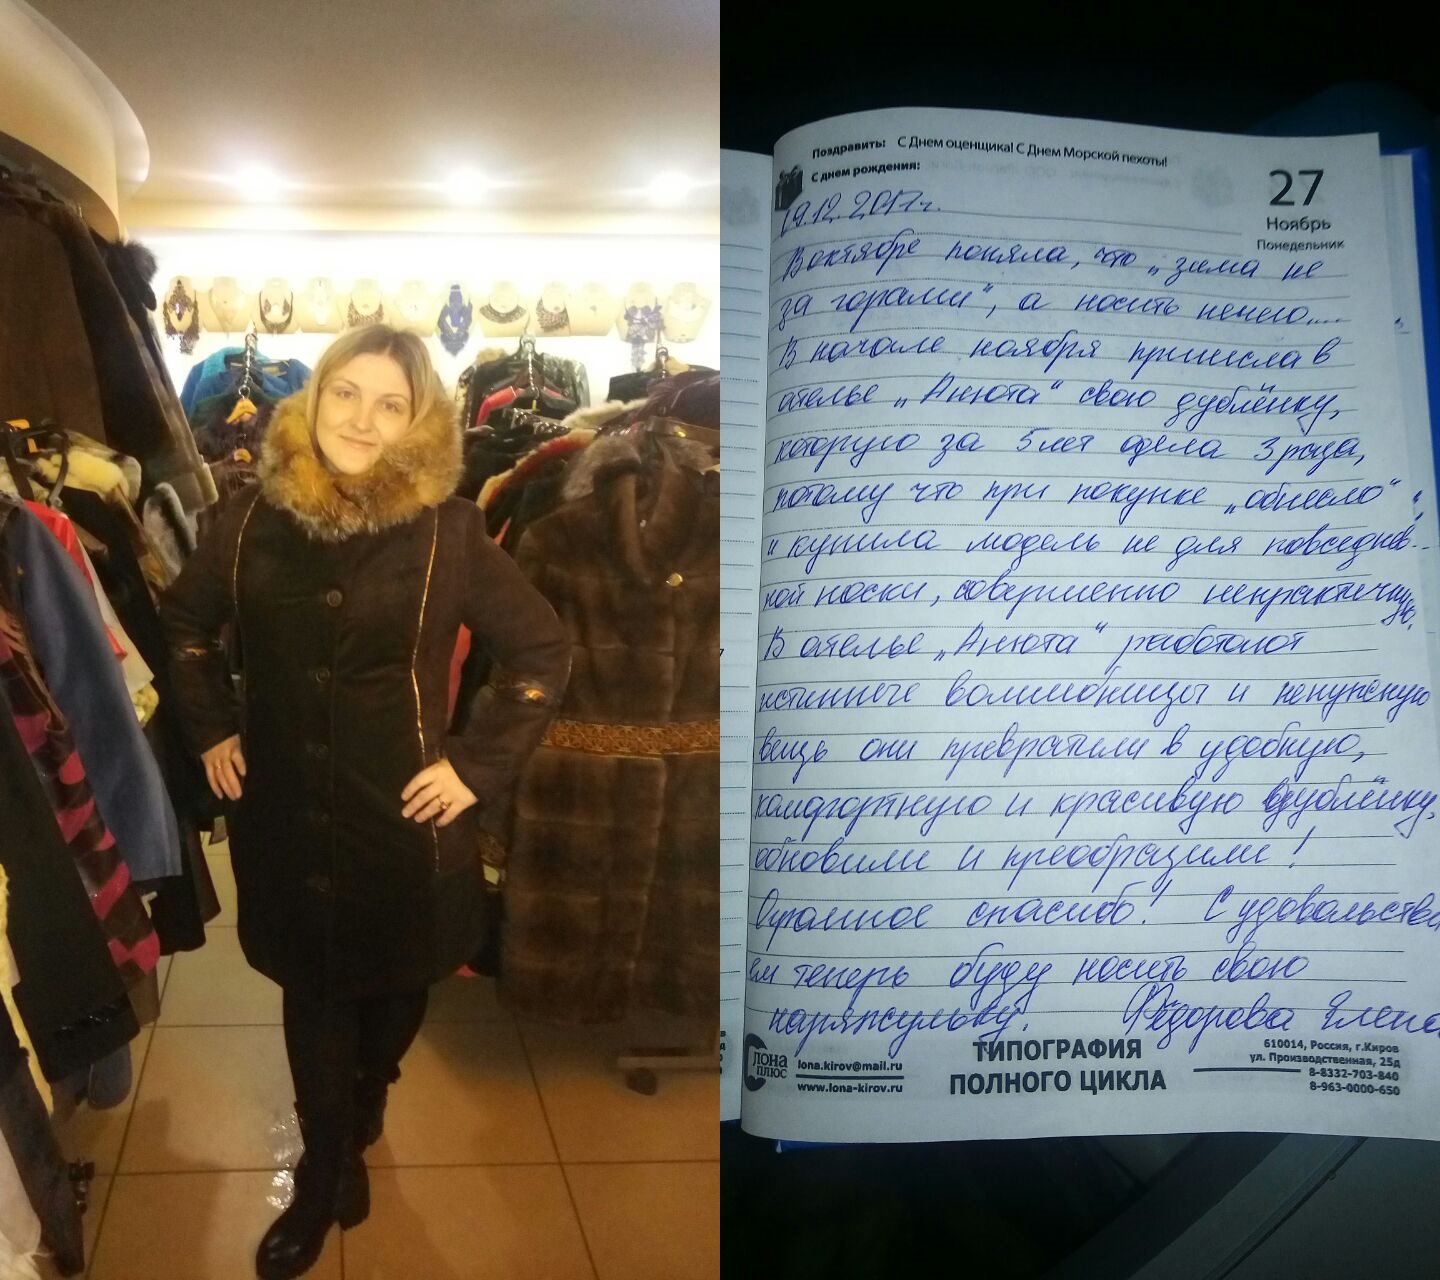 Поздравить: С Днем оценщика! С Днем Морской пехоты!
С днем рождения:
27
Ноябрь
Понедельник
19.12.2017г.
В октябре поняла, что „зима не
за горами“, а носить нечего....
В начале ноября принесла в
ателье „Анюта“ свою дублёнку,
которую за 5 лет одела 3 раза,
потому что при покупке
и купила модель не для повседнев-
ной носки, совершенно непрактичную.
В ателье „Анюта“ работают
истинные волшебницы и ненужную
вещь они превратили в удобную,
комфортную и красивую дублёнку,
обновили и преобразили!
Огромное спасибо! С удовольстви
ем теперь буду носить свою
Фёдорова Елена
Лона
плюс
lona.kirov@mail.ru
www.lona-kirov.ru
ТИПОГРАФИЯ
ПОЛНОГО ЦИКЛА
610014, Россия, г.Киров
ул. Производственная, 25д
8-8332-703-840
8-963-0000-650